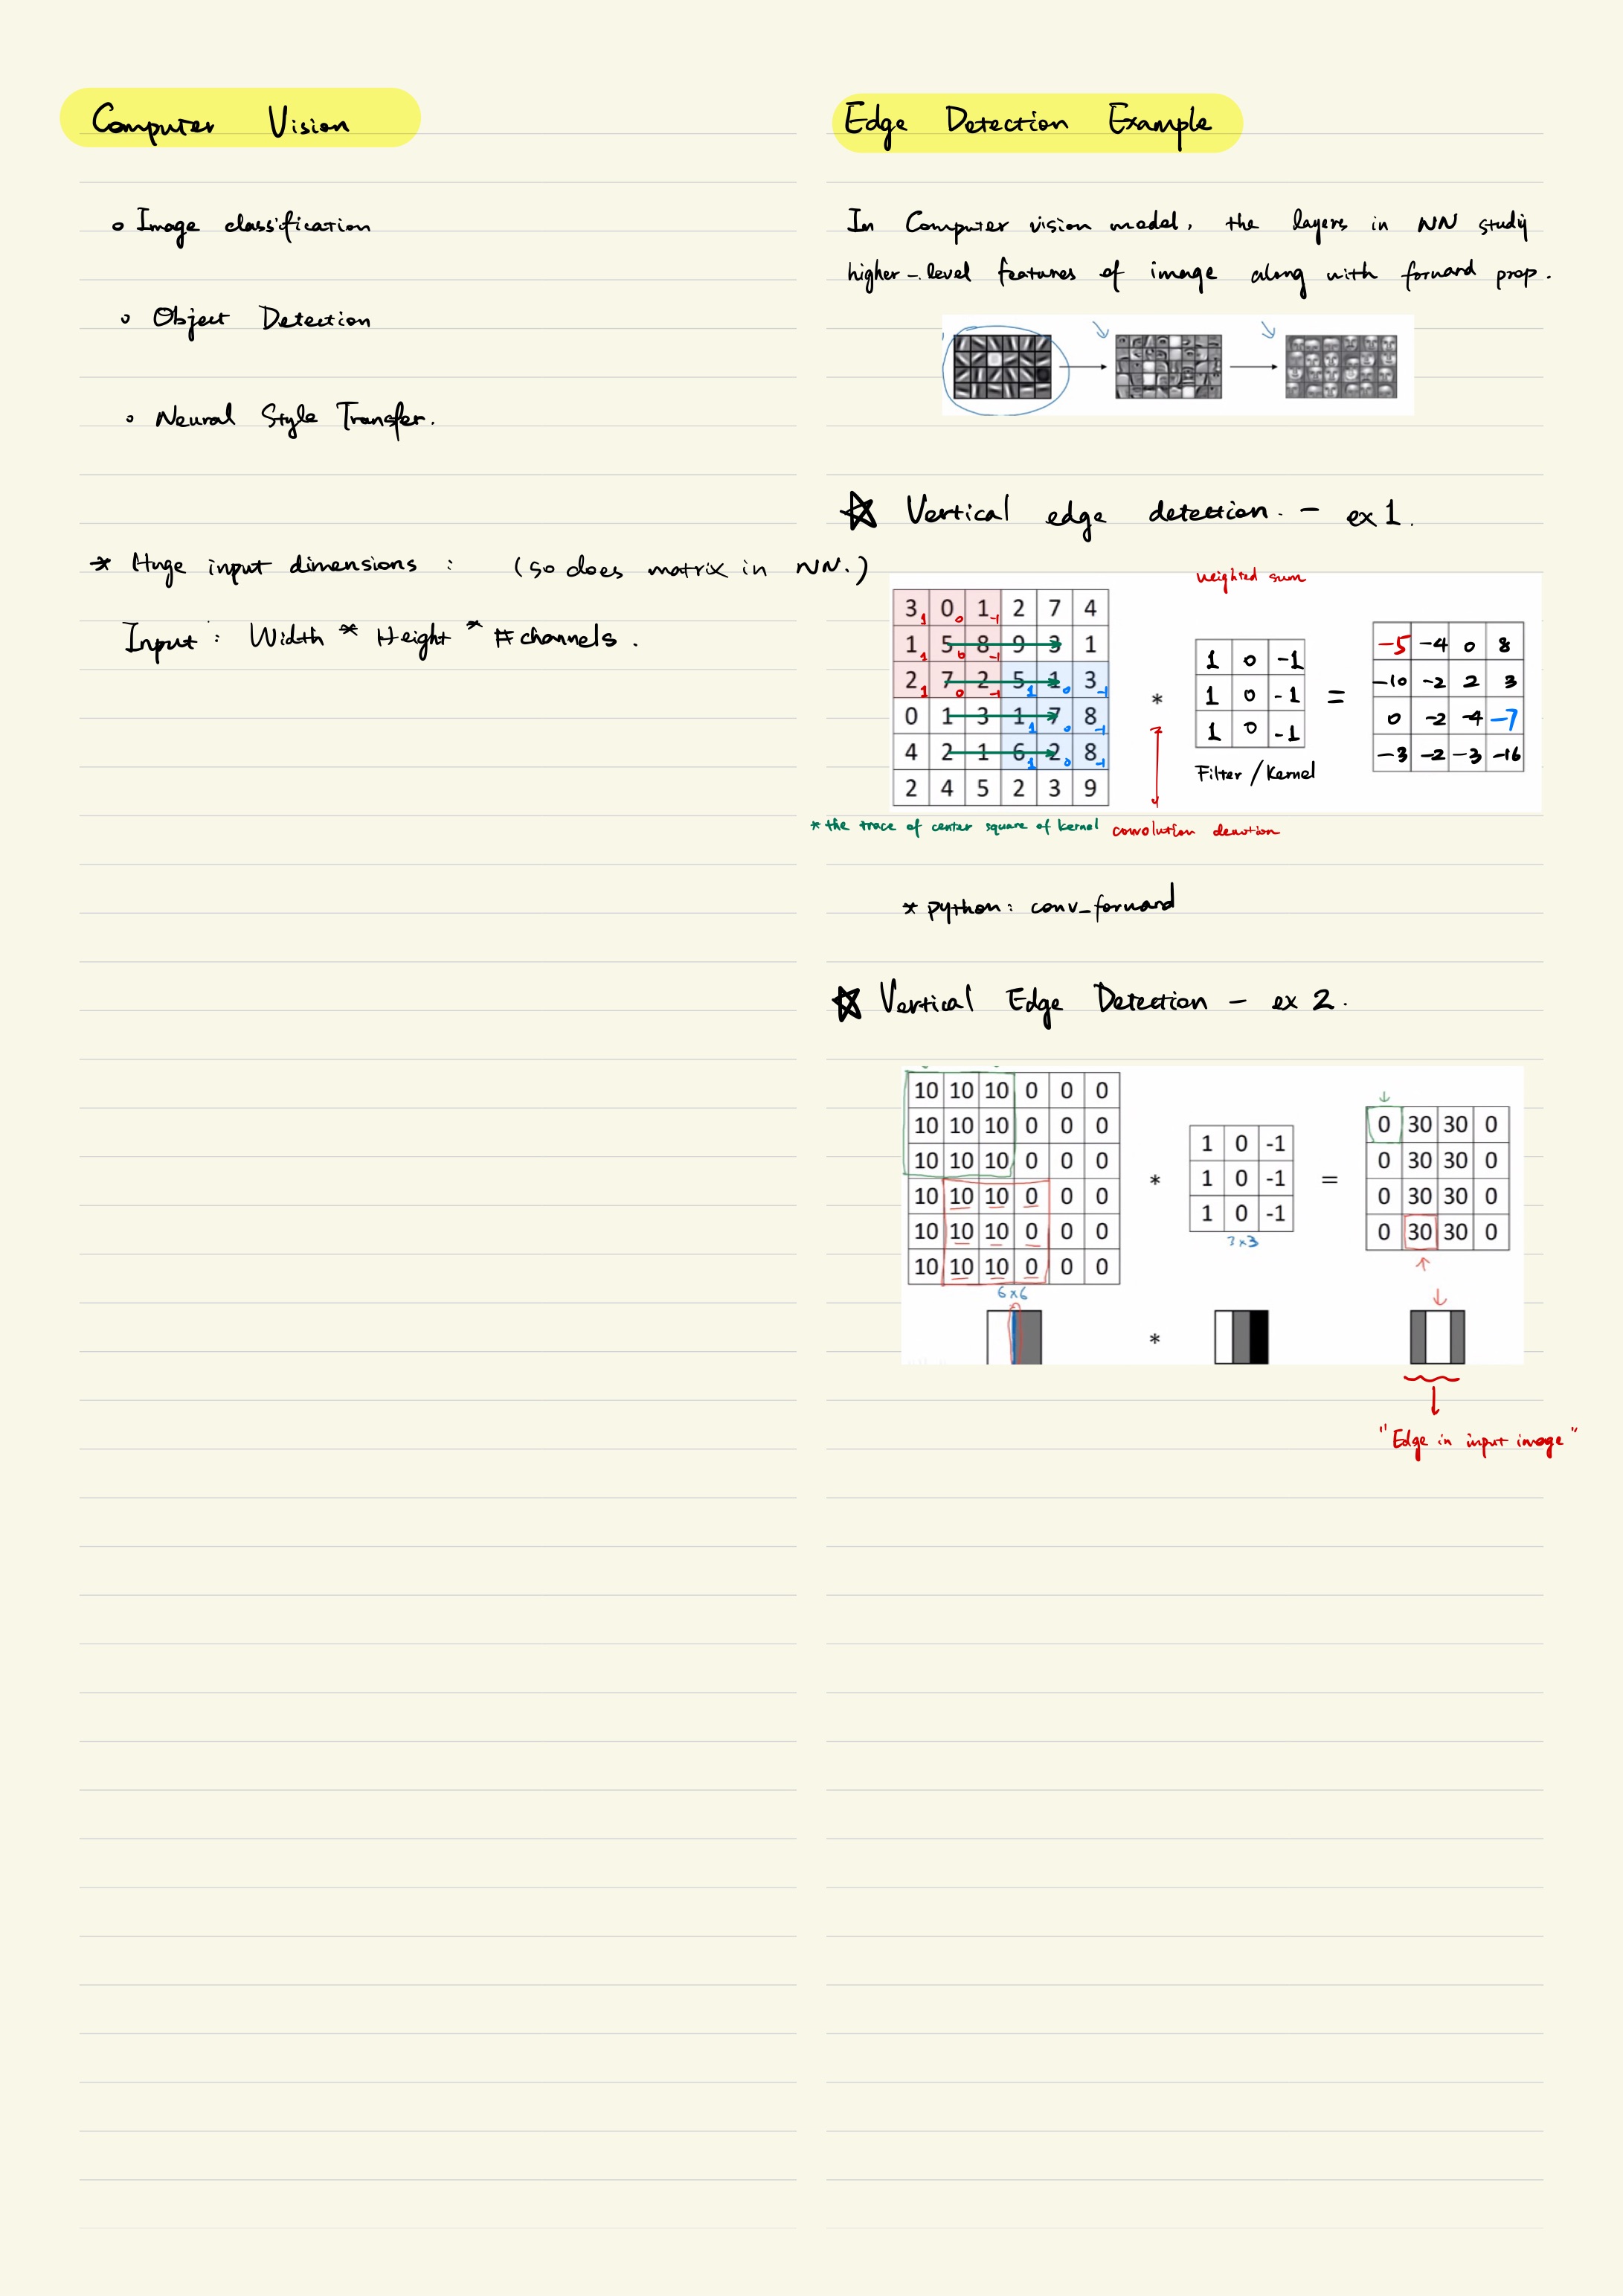 Computer Vision
◦ Image classification
◦ Object Detection
◦ Neural Style Transfer.
* Huge input dimensions : (so does matrix in NN.)
Input : Width * Height * # channels.
Edge Detection Example
In Computer vision model, the layers in NN study
higher-level features of image along with forward prop.
☆ Vertical edge detection. - ex 1.
weighted sum
3 1 0 0 1 -1 2 7 4
1 1 5 0 8 -1 9 3 1
2 1 7 0 2 -1 5 1 1 0 3 -1
0 1 3 1 1 7 0 8 -1
4 2 1 6 1 2 0 8 -1
2 4 5 2 3 9
*
1 0 -1
1 0 -1
1 0 -1
Filter / Kernel
=
-5 -4 0 8
-10 -2 2 3
0 -2 -4 -7
-3 -2 -3 -16
* the trace of center square of kernel
convolution denotion
* python: conv_forward
☆ Vertical Edge Detection - ex 2.
10 10 10 0 0 0
10 10 10 0 0 0
10 10 10 0 0 0
10 10 10 0 0 0
10 10 10 0 0 0
10 10 10 0 0 0
6×6
*
1 0 -1
1 0 -1
1 0 -1
3×3
=
0 30 30 0
0 30 30 0
0 30 30 0
0 30 30 0
*
"Edge in input image"